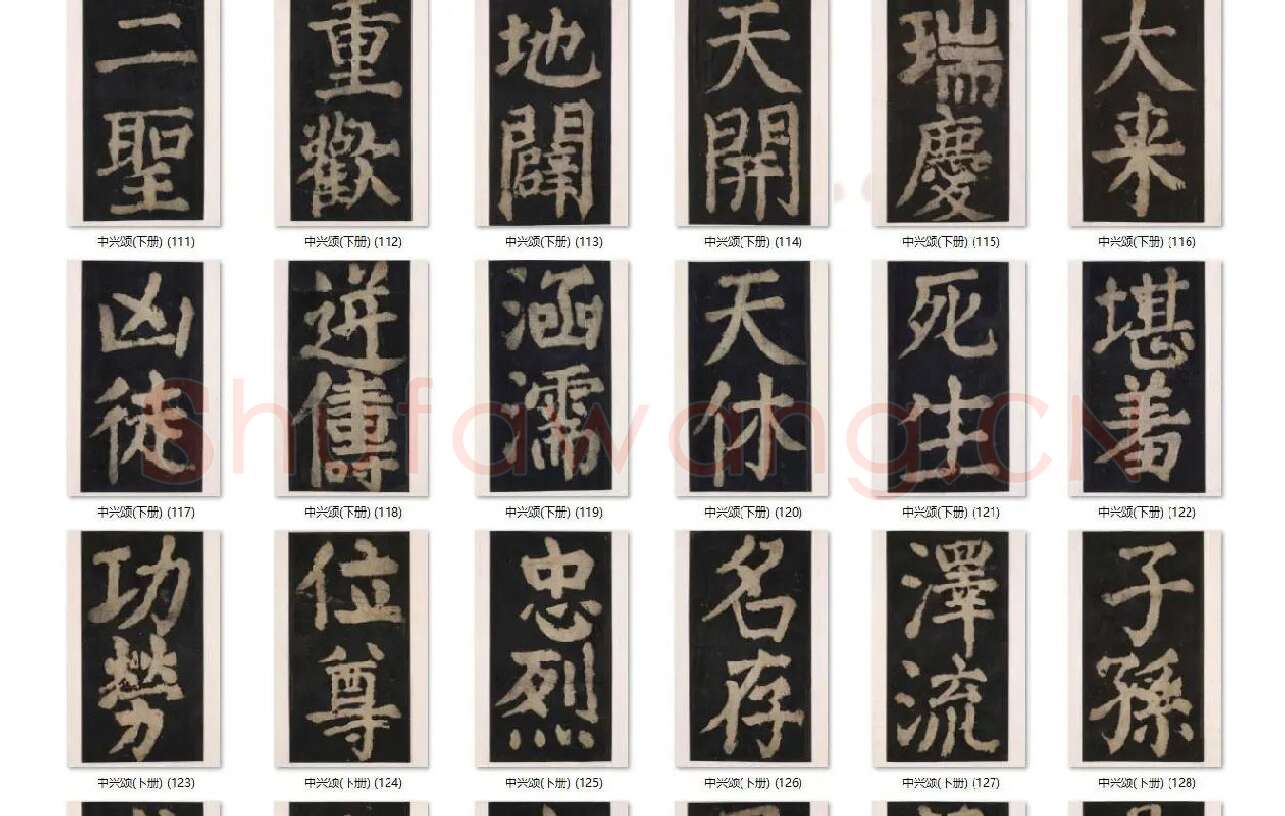 二聖 重歡 地闢 天開 瑞慶 大来
中兴颂(下册) (111) 中兴颂(下册) (112) 中兴颂(下册) (113) 中兴颂(下册) (114) 中兴颂(下册) (115) 中兴颂(下册) (116)
凶徒 逆儔 涵濡 天休 死生 堪羞
中兴颂(下册) (117) 中兴颂(下册) (118) 中兴颂(下册) (119) 中兴颂(下册) (120) 中兴颂(下册) (121) 中兴颂(下册) (122)
Shufawang.CN
功勞 位尊 忠烈 名存 澤流 子孫
中兴颂(下册) (123) 中兴颂(下册) (124) 中兴颂(下册) (125) 中兴颂(下册) (126) 中兴颂(下册) (127) 中兴颂(下册) (128)